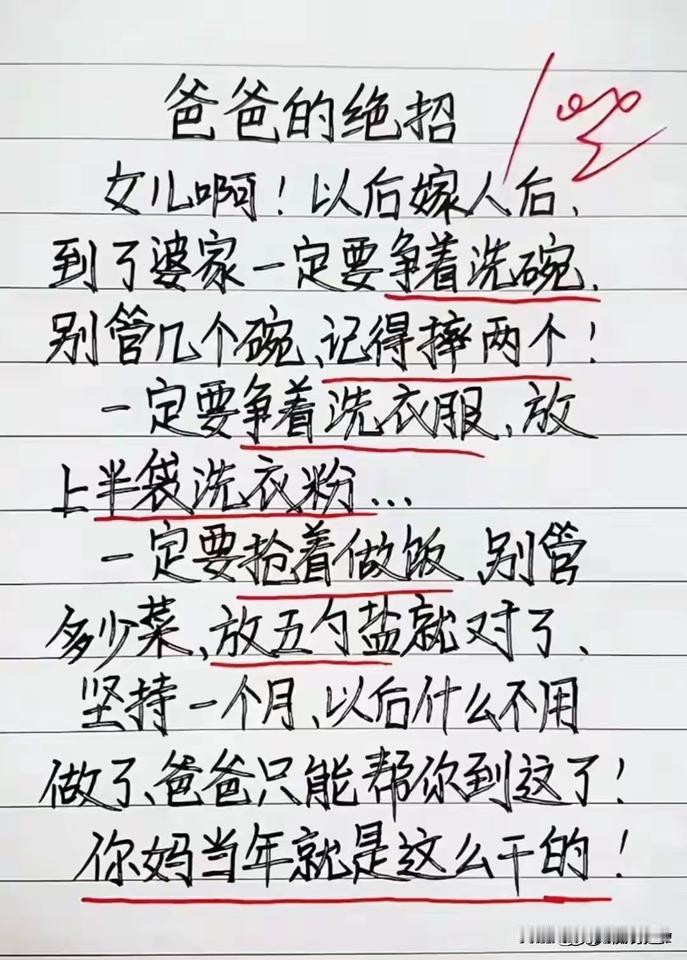 爸爸的绝招
100
女儿啊！以后嫁人后、
到了婆家一定要争着洗碗、
别管几个碗、记得摔两个！
一定要争着洗衣服、放
上半袋洗衣粉…
一定要抢着做饭、别管
多少菜、放五勺盐就对了、
坚持一个月、以后什么不用
做了、爸爸只能帮你到这了！
你妈当年就是这么干的！